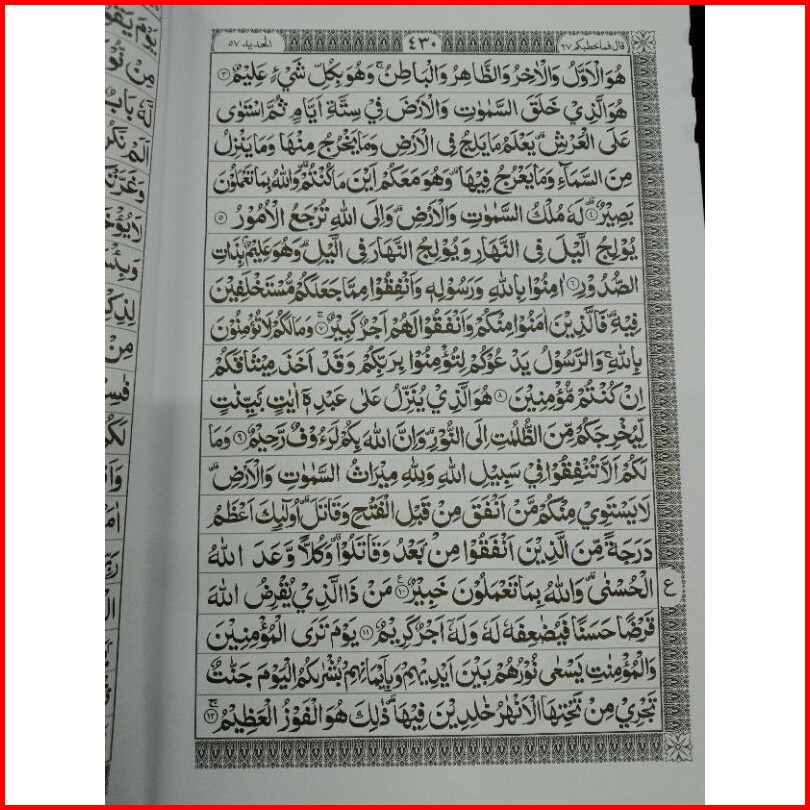 قال فما خطبكم ٢٧ ٤٣٠ الحديد ٥٧
هُوَ الْاَوَّلُ وَالْاٰخِرُ وَالظَّاهِرُ وَالْبَاطِنُ ۚ وَهُوَ بِكُلِّ شَيْءٍ عَلِيْمٌ ۝٣
هُوَ الَّذِيْ خَلَقَ السَّمٰوٰتِ وَالْاَرْضَ فِيْ سِتَّةِ اَيَّامٍ ثُمَّ اسْتَوٰى
عَلَى الْعَرْشِ ۗ يَعْلَمُ مَا يَلِجُ فِى الْاَرْضِ وَمَا يَخْرُجُ مِنْهَا وَمَا يَنْزِلُ
مِنَ السَّمَاۤءِ وَمَا يَعْرُجُ فِيْهَا ۗ وَهُوَ مَعَكُمْ اَيْنَ مَا كُنْتُمْ ۗ وَاللّٰهُ بِمَا تَعْمَلُوْنَ
بَصِيْرٌ ۝٤ لَهٗ مُلْكُ السَّمٰوٰتِ وَالْاَرْضِ ۗ وَاِلَى اللّٰهِ تُرْجَعُ الْاُمُوْرُ ۝٥
يُوْلِجُ الَّيْلَ فِى النَّهَارِ وَيُوْلِجُ النَّهَارَ فِى الَّيْلِ ۗ وَهُوَ عَلِيْمٌ ۢ بِذَاتِ
الصُّدُوْرِ ۝٦ اٰمِنُوْا بِاللّٰهِ وَرَسُوْلِهٖ وَاَنْفِقُوْا مِمَّا جَعَلَكُمْ مُّسْتَخْلَفِيْنَ
فِيْهِ ۗ فَالَّذِيْنَ اٰمَنُوْا مِنْكُمْ وَاَنْفَقُوْا لَهُمْ اَجْرٌ كَبِيْرٌ ۝٧ وَمَا لَكُمْ لَا تُؤْمِنُوْنَ
بِاللّٰهِ ۚ وَالرَّسُوْلُ يَدْعُوْكُمْ لِتُؤْمِنُوْا بِرَبِّكُمْ وَقَدْ اَخَذَ مِيْثَاقَكُمْ
اِنْ كُنْتُمْ مُّؤْمِنِيْنَ ۝٨ هُوَ الَّذِيْ يُنَزِّلُ عَلٰى عَبْدِهٖٓ اٰيٰتٍ ۢ بَيِّنٰتٍ
لِّيُخْرِجَكُمْ مِّنَ الظُّلُمٰتِ اِلَى النُّوْرِ ۗ وَاِنَّ اللّٰهَ بِكُمْ لَرَءُوْفٌ رَّحِيْمٌ ۝٩ وَمَا
لَكُمْ اَلَّا تُنْفِقُوْا فِيْ سَبِيْلِ اللّٰهِ وَلِلّٰهِ مِيْرَاثُ السَّمٰوٰتِ وَالْاَرْضِ ۗ
لَا يَسْتَوِيْ مِنْكُمْ مَّنْ اَنْفَقَ مِنْ قَبْلِ الْفَتْحِ وَقَاتَلَ ۗ اُولٰۤىِٕكَ اَعْظَمُ
دَرَجَةً مِّنَ الَّذِيْنَ اَنْفَقُوْا مِنْ ۢ بَعْدُ وَقَاتَلُوْا ۗ وَكُلًّا وَّعَدَ اللّٰهُ
الْحُسْنٰى ۗ وَاللّٰهُ بِمَا تَعْمَلُوْنَ خَبِيْرٌ ۝١٠ مَنْ ذَا الَّذِيْ يُقْرِضُ اللّٰهَ
ع
قَرْضًا حَسَنًا فَيُضٰعِفَهٗ لَهٗ وَلَهٗٓ اَجْرٌ كَرِيْمٌ ۝١١ يَوْمَ تَرَى الْمُؤْمِنِيْنَ
وَالْمُؤْمِنٰتِ يَسْعٰى نُوْرُهُمْ بَيْنَ اَيْدِيْهِمْ وَبِاَيْمَانِهِمْ بُشْرٰىكُمُ الْيَوْمَ جَنّٰتٌ
تَجْرِيْ مِنْ تَحْتِهَا الْاَنْهٰرُ خٰلِدِيْنَ فِيْهَا ۗ ذٰلِكَ هُوَ الْفَوْزُ الْعَظِيْمُ ۝١٢